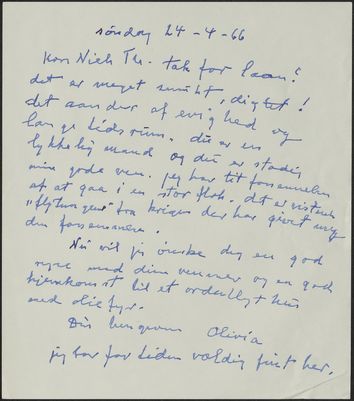 søndag 24-4-66
Kære Niels Th. - tak for laan!
det er meget smukt, digtet!
det aander af evighed og
lange tidsrum. du er en
lykkelig mand og du er stadig
min gode ven. jeg har tit fornemmelsen
af at gaa i en stor flok. det er vistnok
"flygtninge" fra krigen der har givet mig
den fornemmelse.
Nu vil jeg ønske dig en god
rejse med dine venner og en god
hjemkomst til et ordentligt hus
med oliefyr.
Din hengivne Olivia
jeg bor for tiden vældig fint her.